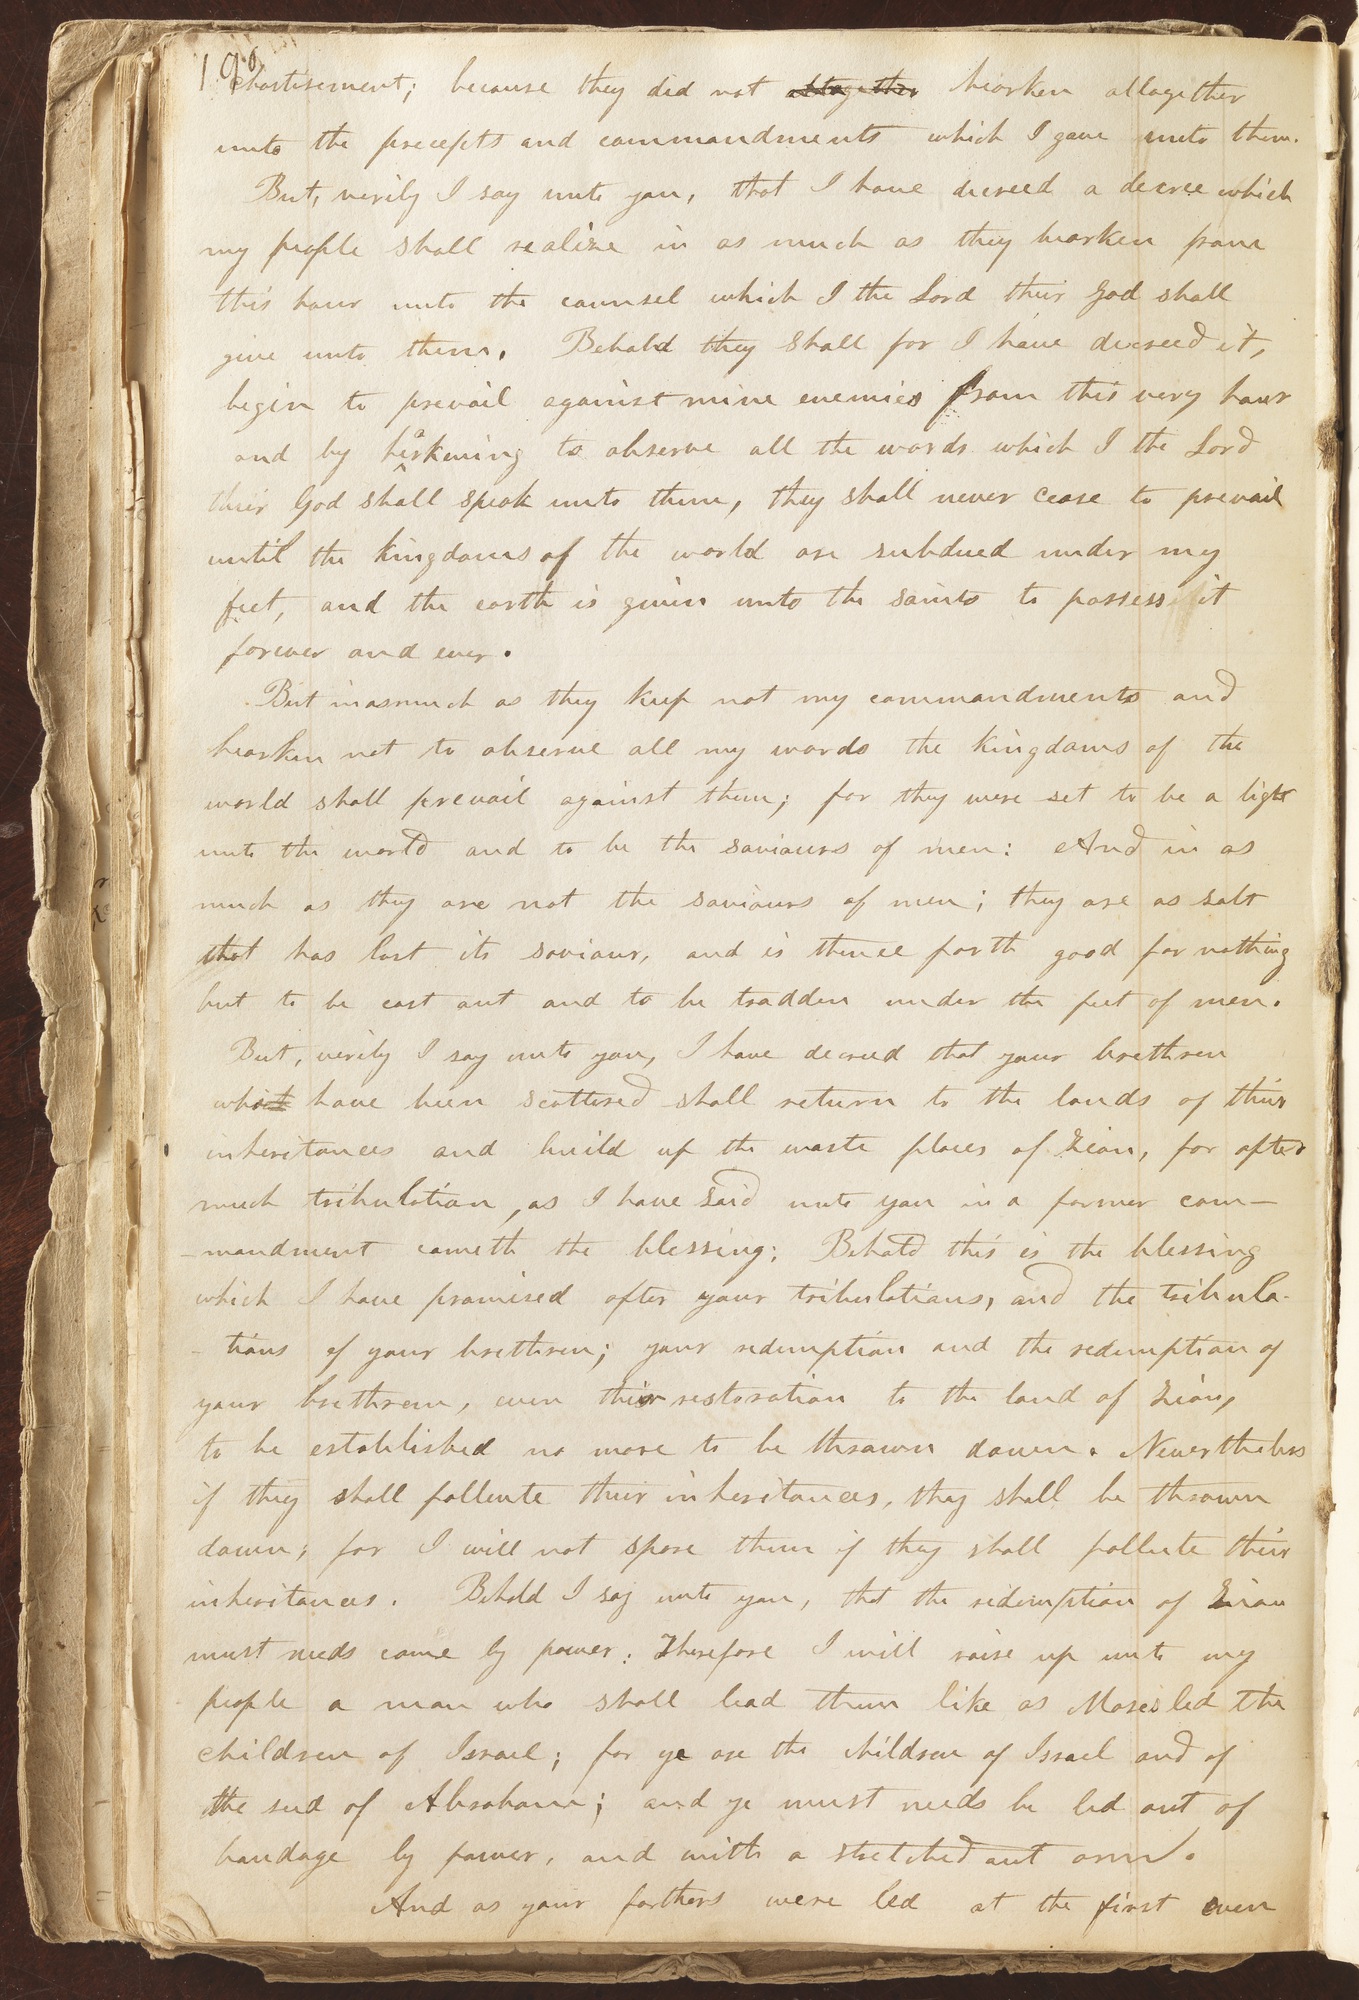 190
chastisement; because they did not altogether hearken altogether
unto the precepts and commandments which I gave unto them.
But, verily I say unto you, that I have decreed a decree which
my people shall realize in as much as they hearken from
this hour unto the counsel which I the Lord their God shall
give unto them. Behold they shall for I have decreed it,
begin to prevail against mine enemies from this very hour
and by hearkening to observe all the words which I the Lord
their God shall speak unto them, they shall never cease to prevail
until the kingdoms of the world are subdued under my
feet, and the earth is given unto the saints to possess it
forever and ever.
But inasmuch as they keep not my commandments and
hearken not to observe all my words the kingdoms of the
world shall prevail against them; for they were set to be a light
unto the world and to be the saviours of men: And in as
much as they are not the saviours of men; they are as salt
that has lost its saviour, and is thence forth good for nothing
but to be cast out and to be trodden under the feet of men.
But, verily I say unto you, I have decreed that your brethren
which have been scattered shall return to the lands of their
inheritances and build up the waste places of Zion, for after
much tribulation, as I have said unto you in a former com-
-mandment cometh the blessing; Behold this is the blessing
which I have promised after your tribulations, and the tribula-
-tions of your brethren; your redemption and the redemption of
your brethren, even their restoration to the land of Zion,
to be established no more to be thrown down. Nevertheless
if they shall pollute their inheritances, they shall be thrown
down; for I will not spare them if they shall pollute their
inheritances. Behold I say unto you, that the redemption of Zion
must needs come by power: Therefore I will raise up unto my
people a man who shall lead them like as Moses led the
children of Israel; for ye are the children of Israel and of
the seed of Abraham; and ye must needs be led out of
bondage by power, and with a stretched out arm.
And as your farthers were led at the first even